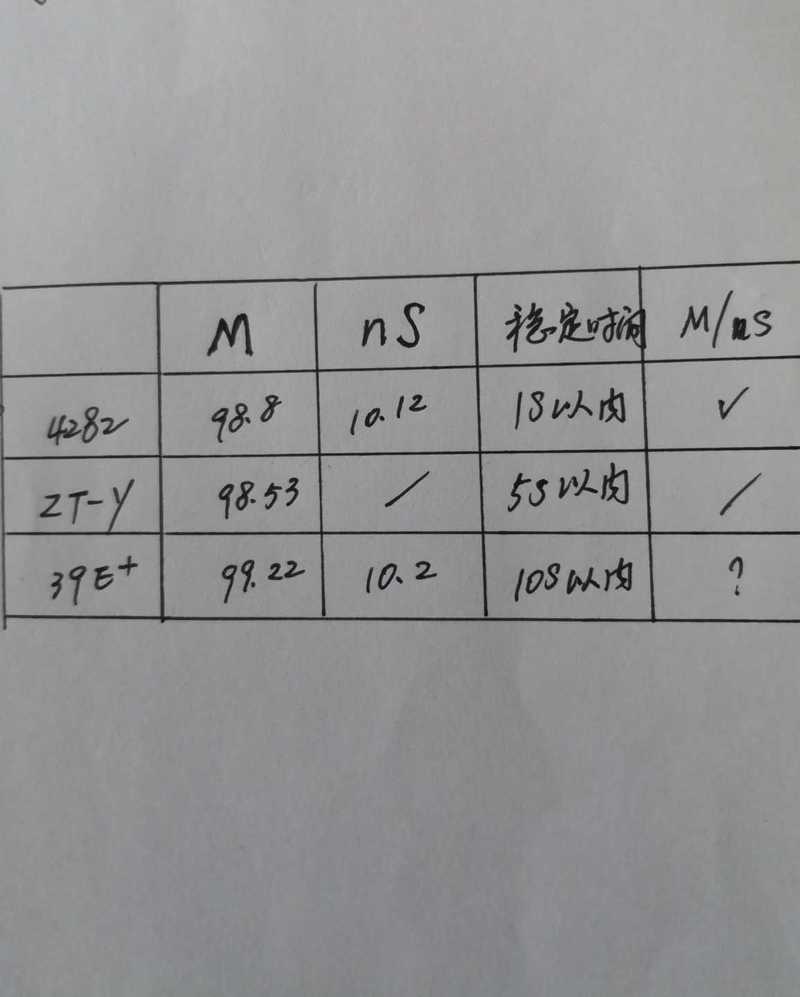 M nS 稳定时间 M/nS
4282 98.8 10.12 1S以内 ✓
ZT-Y 98.53 / 5S以内 /
39E+ 99.22 10.2 10S以内 ?